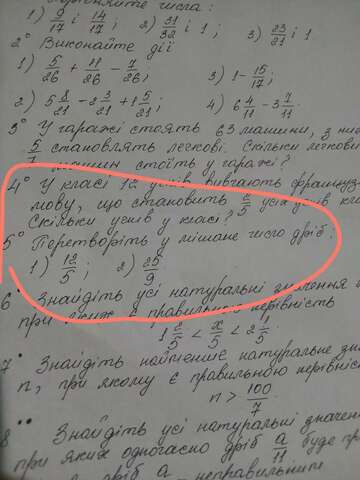 1) 9/17 і 14/17; 2) 31/32 і 1; 3) 23/21 і 1
2° Виконайте дії
1) 5/26 + 11/26 - 7/26; 3) 1 - 15/17;
2) 5 8/21 - 2 3/21 + 1 5/21; 4) 6 4/11 - 3 7/11
3° У гаражі стоять 63 машини, з них
5/7 становлять легкові. Скільки легкових
машин стоїть у гаражі?
4° У класі 12 учнів вивчають французьку
мову, що становить 2/5 усіх учнів
Скільки учнів у класі?
5° Перетворіть у мішане число дріб
1) 12/5; 2) 29/9
6 Знайдіть усі натуральні значення
при яких є правильною нерівність
1 2/5 < x/5 < 2 1/5
7 Знайдіть найменше натуральне
n, при якому є правильною нерівність
n > 100/7
8 Знайдіть усі натуральні
при яких одночасно дріб a/11 буде
дріб a неправильним